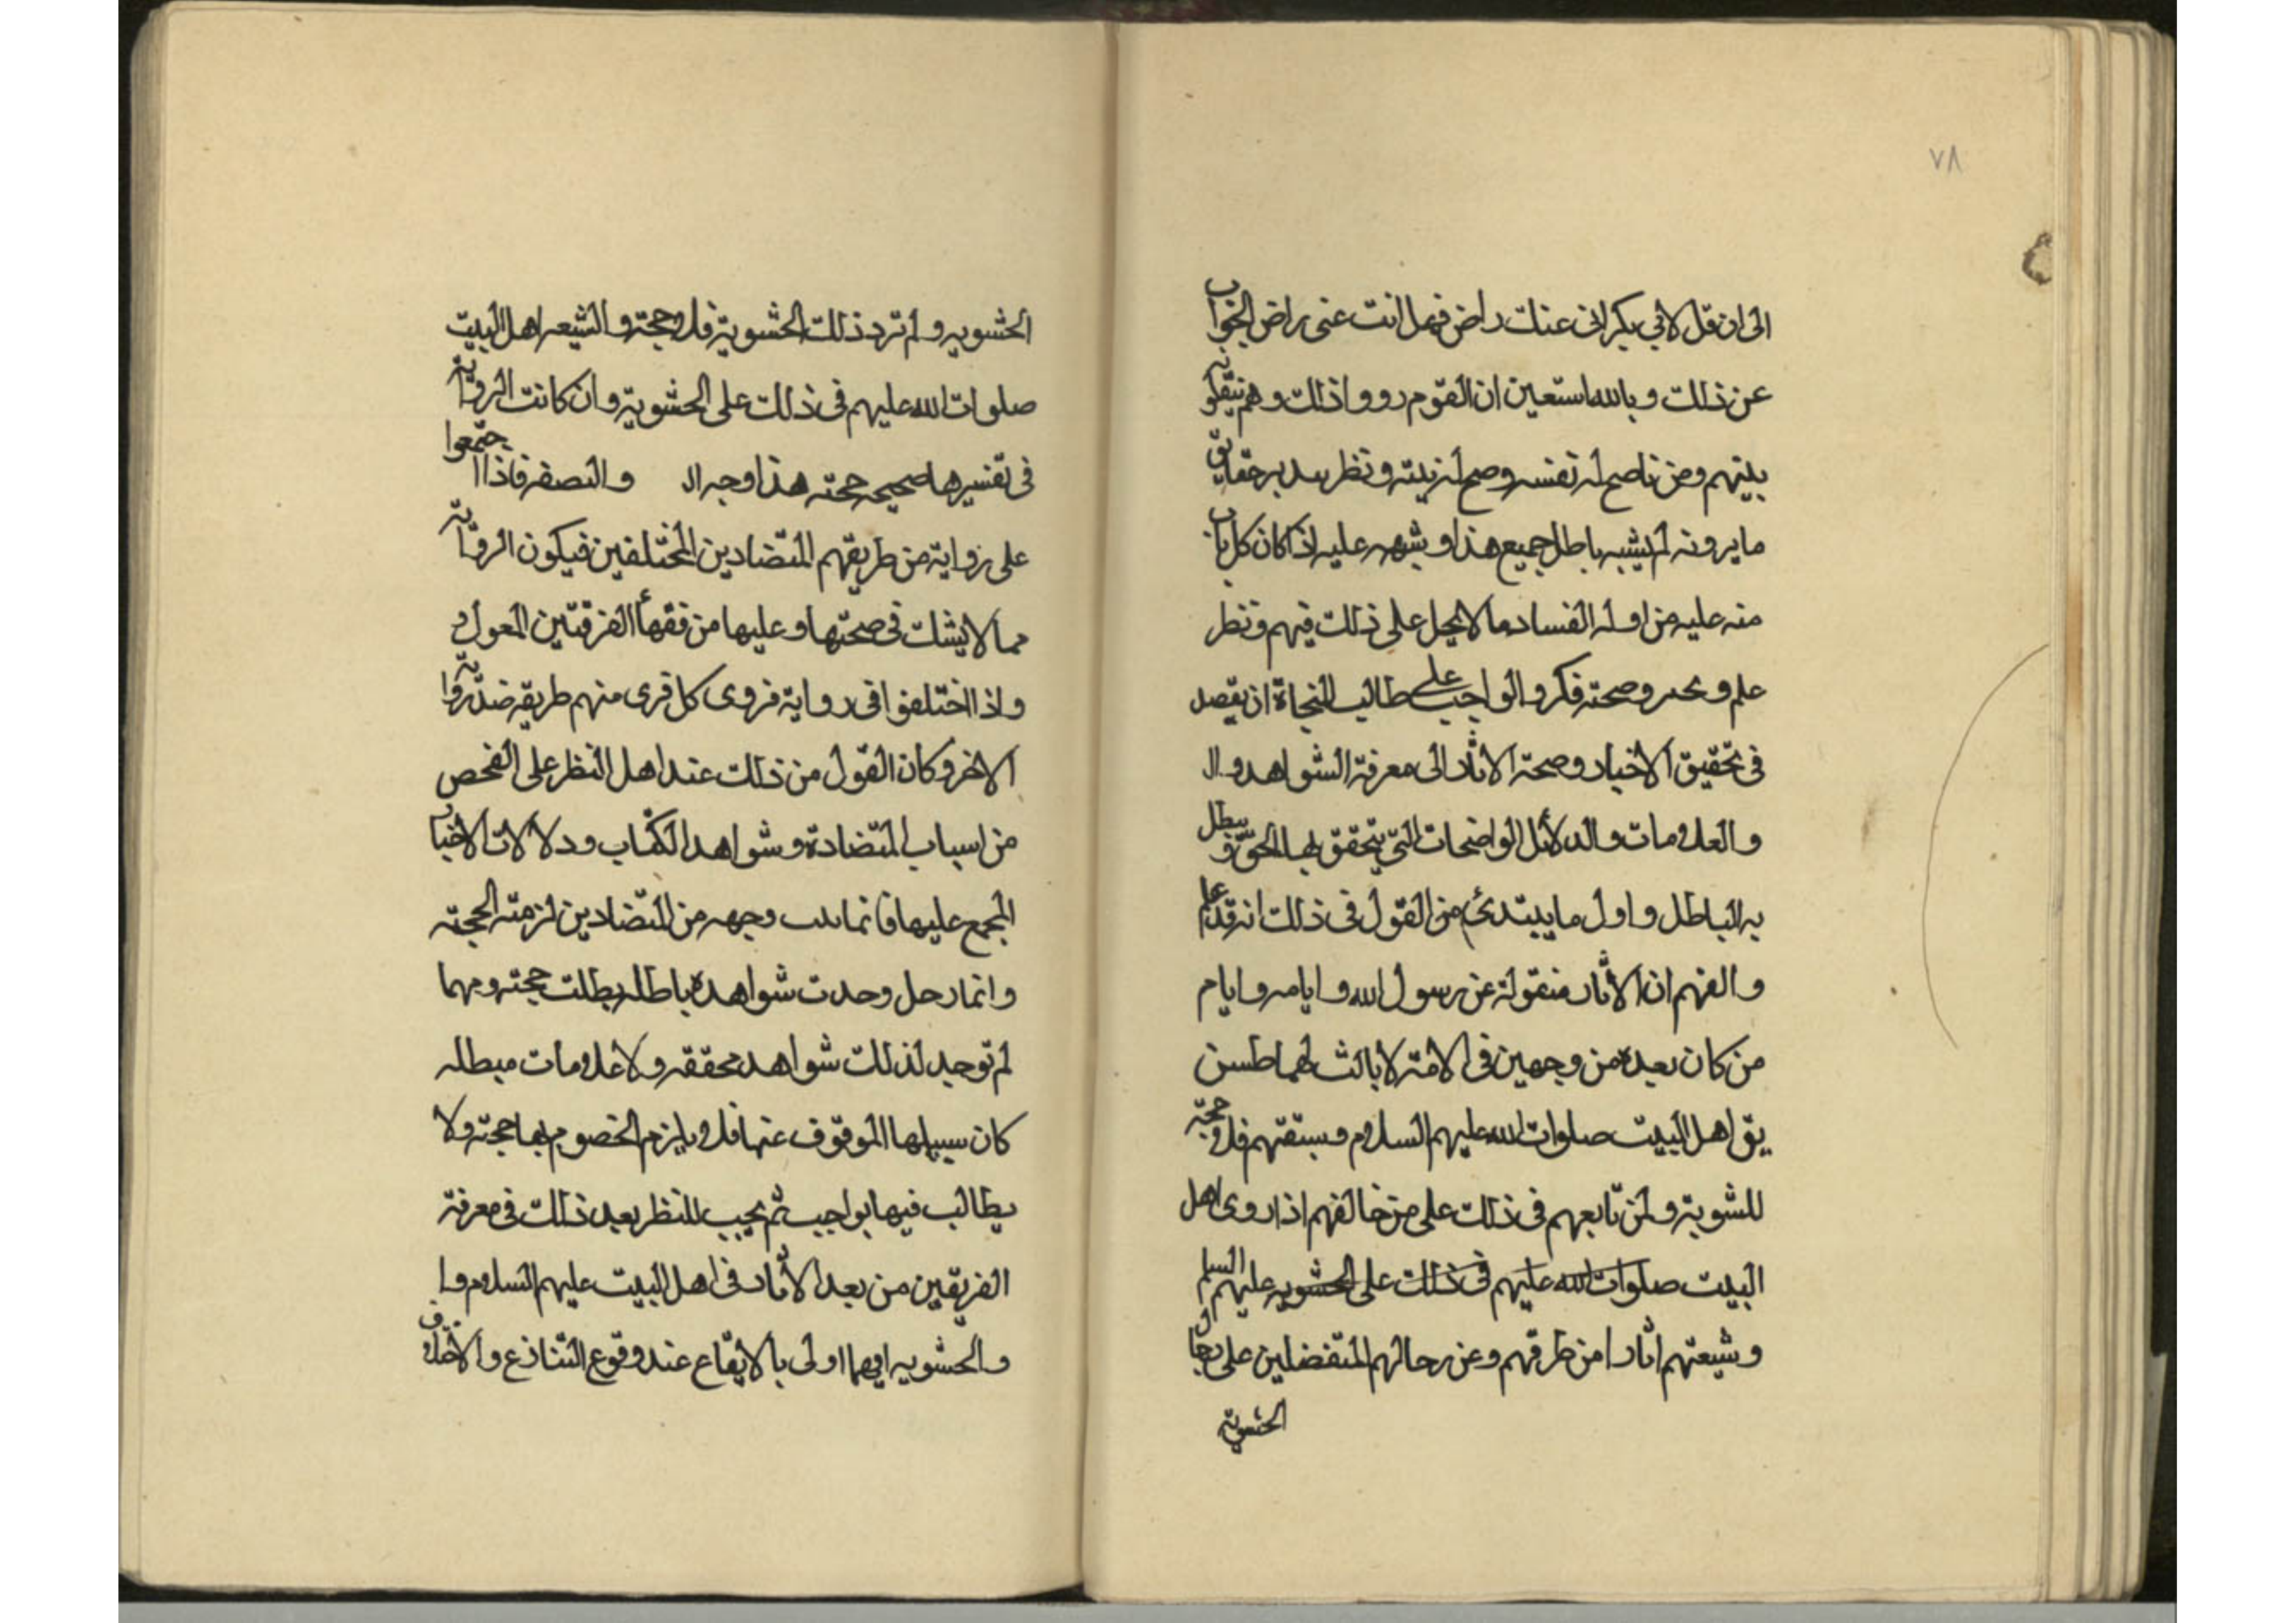 ٧٨
الى ان قل لابي بكر اني عنك راض فهل انت عنى راض الجواب
عن ذلك وبالله استعين ان القوم رووا ذلك وهم
بينهم ومن ناصح له نفسه وصح له نيته ونظر حقايق
ما يرونه لم يشبه باطل جميع هذا و عليه اذ كان كل باب
منه عليه من اوله الفساد ما لا يحل على ذلك فيهم ونظر
علم و وصحته فكر والواجب على طالب النجاة ان يقصد
فى تحقيق الاخبار وصحة الاثار الى معرفة الشواهد وال
والعلامات والدلائل الواضحات التي يتحقق بها الحق ويبطل
به الباطل واول ما يبتدئ من القول فى ذلك انه قد
والفهم ان الاثار منقولة عن رسول الله و ايامه و ايام
من كان بعده من وجهين فى الامة لا ثالث لهما
اهل البيت صلوات الله عليهم السلام وسبقتهم فلا حجة
للشوية ولمن تابعهم فى ذلك على من خالفهم اذا روى اهل
البيت صلوات الله عليهم فى ذلك على الحشويه عليهم السلم
وشيعتهم اثارا من طرقهم وعن رحالهم المتفضلين على رجال
الحشوية
الحشويه ولم ترد ذلك الحشوية فلا حجة و الشيعه اهل البيت
صلوات الله عليهم فى ذلك على الحشوية وان كانت الرواية
فى تفسيرها صحيحه حجته هذا وجه ال والنصفه فاذا اجتمعوا
على رواية من طريقهم المتضادين المختلفين فيكون الرواية
مما لا يشك فى صحتها وعليها من فقهأ الفرقتين المعول و
واذا اختلفوا فى رواية فروى كل قرى منهم طريقه ضد رواية
الاخر وكان القول من ذلك عند اهل النظر على الفحص
من اسباب المتضادة وشواهد الكتاب ودلالات الاخبار
المجمع عليها فانما وجهه من المتضادين لزمته الحجته
وانما رحل وحدت شواهده باطله بطلت حجته ومهما
لم توجد لذلك شواهد محققه ولا علامات مبطله
كان سبيلها الموقوف عنها فلا يلزم الخصوم بها حجته ولا
يطالب فيها بواجب ثم يجب للنظر بعد ذلك فى معرفة
الفريقين من بعد الاثار فى اهل البيت عليهم السلام وا
والحشويه ايهما اولى بالايقاع عند وقوع التنازع والاختلاف